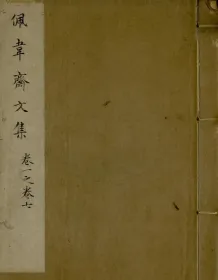 佩韋齋文集
卷一之卷七